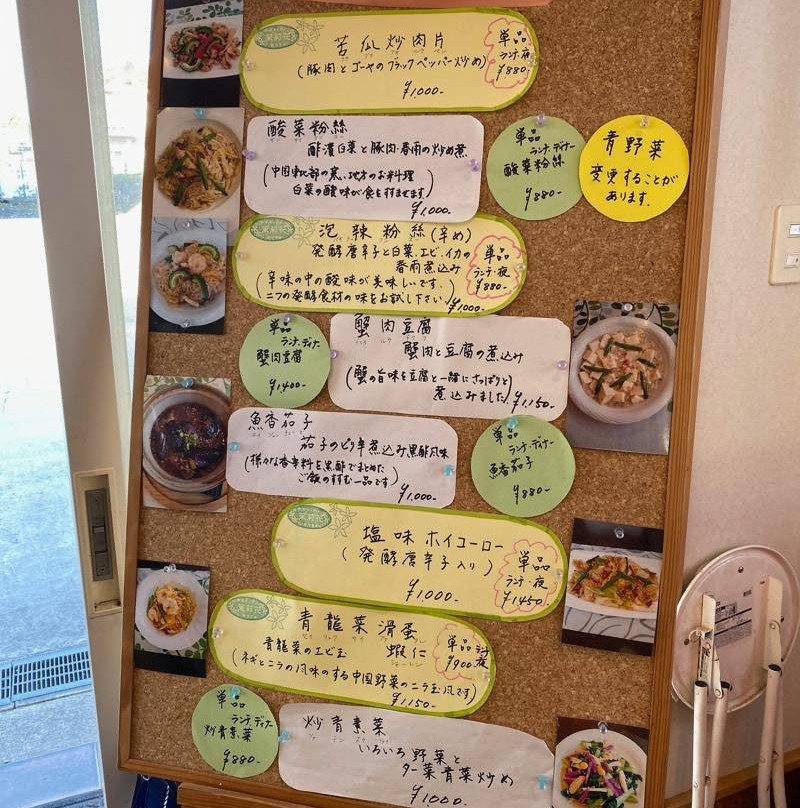 苦瓜炒肉片
(豚肉とゴーヤのブラックペッパー炒め)
¥1,000-
単品
ランチ・夜
¥880-
酸菜粉絲
酢漬白菜と豚肉・春雨の炒め煮
(中国東北部の寒い地方のお料理
白菜の酸味が食をすすませます)
¥1,000-
単品
ランチ・ディナー
酸菜粉絲
¥880-
青野菜
変更することが
あります。
茉莉花
泡辣粉絲(辛め)
発酵唐辛子と白菜、エビ、イカの
春雨煮込み
(辛味の中の酸味が美味しいです。
二つの発酵食材の味をお試し下さい)
¥1000-
単品
ランチ・夜
¥880-
単品
ランチ、ディナー
蟹肉豆腐
¥1,400-
蟹肉豆腐
蟹肉と豆腐の煮込み
(蟹の旨味を豆腐と一緒にさっぱりと
煮込みました)
¥1,150-
魚香茄子
茄子のピリ辛煮込み黒酢風味
(様々な香辛料を黒酢でまとめた
ご飯のすすむ一品です)
¥1,000-
単品
ランチ・ディナー
魚香茄子
¥880-
茉莉花
塩味ホイコーロー
(発酵唐辛子入り)
¥1,000-
単品
ランチ・夜
¥1450-
茉莉花
青龍菜滑蛋
青龍菜のエビ玉
蝦仁
(ネギとニラの風味のする中国野菜のニラ玉風です)
¥1,150-
単品
ランチ
夜
¥900-
単品
ランチ ディナー
炒青素菜
¥880-
炒青素菜
いろいろ野菜と
ター菜青菜炒め
¥1000-